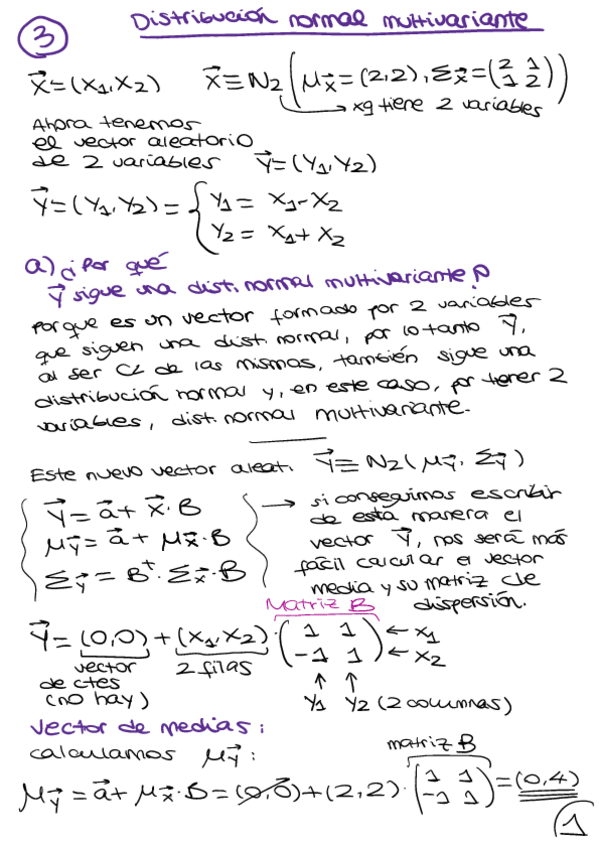 Distribución normal multivariante
3
X⃗=(X₁,X₂) X⃗≡N₂(μx⃗=(2,2), Σx⃗=(2 1
1 2))
xq tiene 2 variables
Ahora tenemos
el vector aleatorio
de 2 variables Y⃗=(Y₁,Y₂)
Y⃗=(Y₁,Y₂)={ Y₁= X₁-X₂
Y₂= X₁+X₂
a) ¿Por qué
Y⃗ sigue una dist. normal multivariante?
Porque es un vector formado por 2 variables
que siguen una dist. normal, por lo tanto Y⃗,
al ser CL de las mismas, también sigue una
distribución normal y, en este caso, por tener 2
variables, dist. normal multivariante.
Este nuevo vector aleat. Y⃗≡N₂(μy⃗, Σy⃗)
Y⃗=a⃗+X⃗·B
μy⃗=a⃗+μx⃗·B
Σy⃗=Bᵗ·Σx⃗·B
→ si conseguimos escribir
de esta manera el
vector Y⃗, nos será más
fácil calcular el vector
media y su matriz de
dispersión.
Matriz B
Y⃗=(0,0)+(X₁,X₂)·(1 1
-1 1) ← X₁
← X₂
vector
de ctes
(no hay)
2 filas
↑ ↑
Y₁ Y₂ (2 columnas)
Vector de medias:
calculamos μy⃗:
matriz B
μy⃗=a⃗+μx⃗·B=(0,0)+(2,2)·(1 1
-1 1)=(0,4)
1